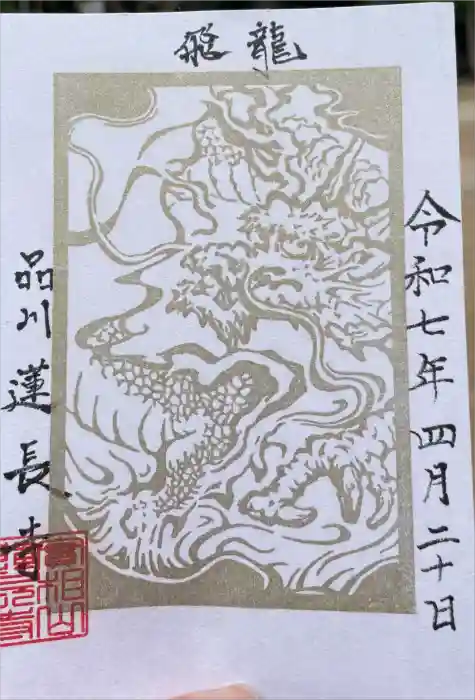 飛龍
令和七年四月二十日
品川 蓮長寺
實相山